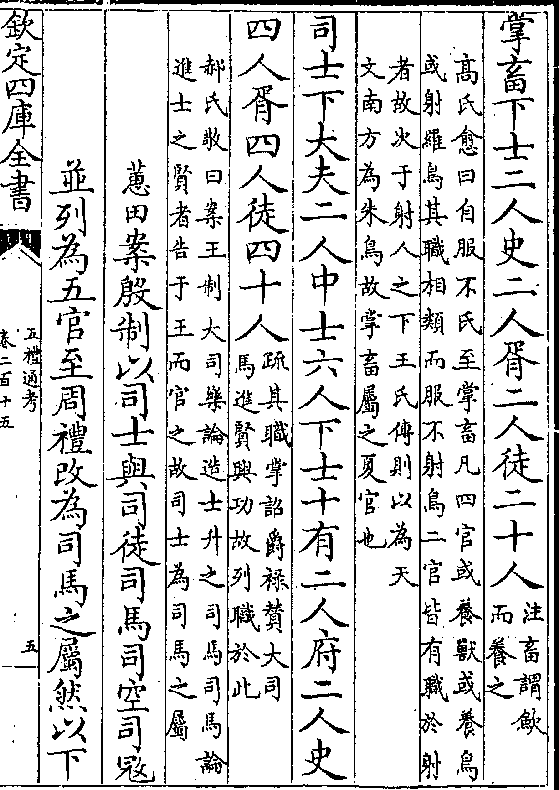 掌畜下士二人史二人胥二人徒二十人注畜謂斂
而養之
高氏愈曰自服不氏至掌畜凡四官或養獸或養鳥
或射羅鳥其職相類而服不射鳥二官皆有職於射
者故次于射人之下王氏傳則以為天
文南方為朱鳥故掌畜屬之夏官也
司士下大夫二人中士六人下士十有二人府二人史
四人胥四人徒四十人疏其職掌詔爵祿贊大司
馬進賢興功故列職於此
郝氏敬曰案王制大司樂論造士升之司馬司馬論
進士之賢者告于王而官之故司士為司馬之屬
蕙田案殷制以司士與司徒司馬司空司冦
並列為五官至周禮改為司馬之屬然以下
欽定四庫全書
五禮通考
卷二百十五
五